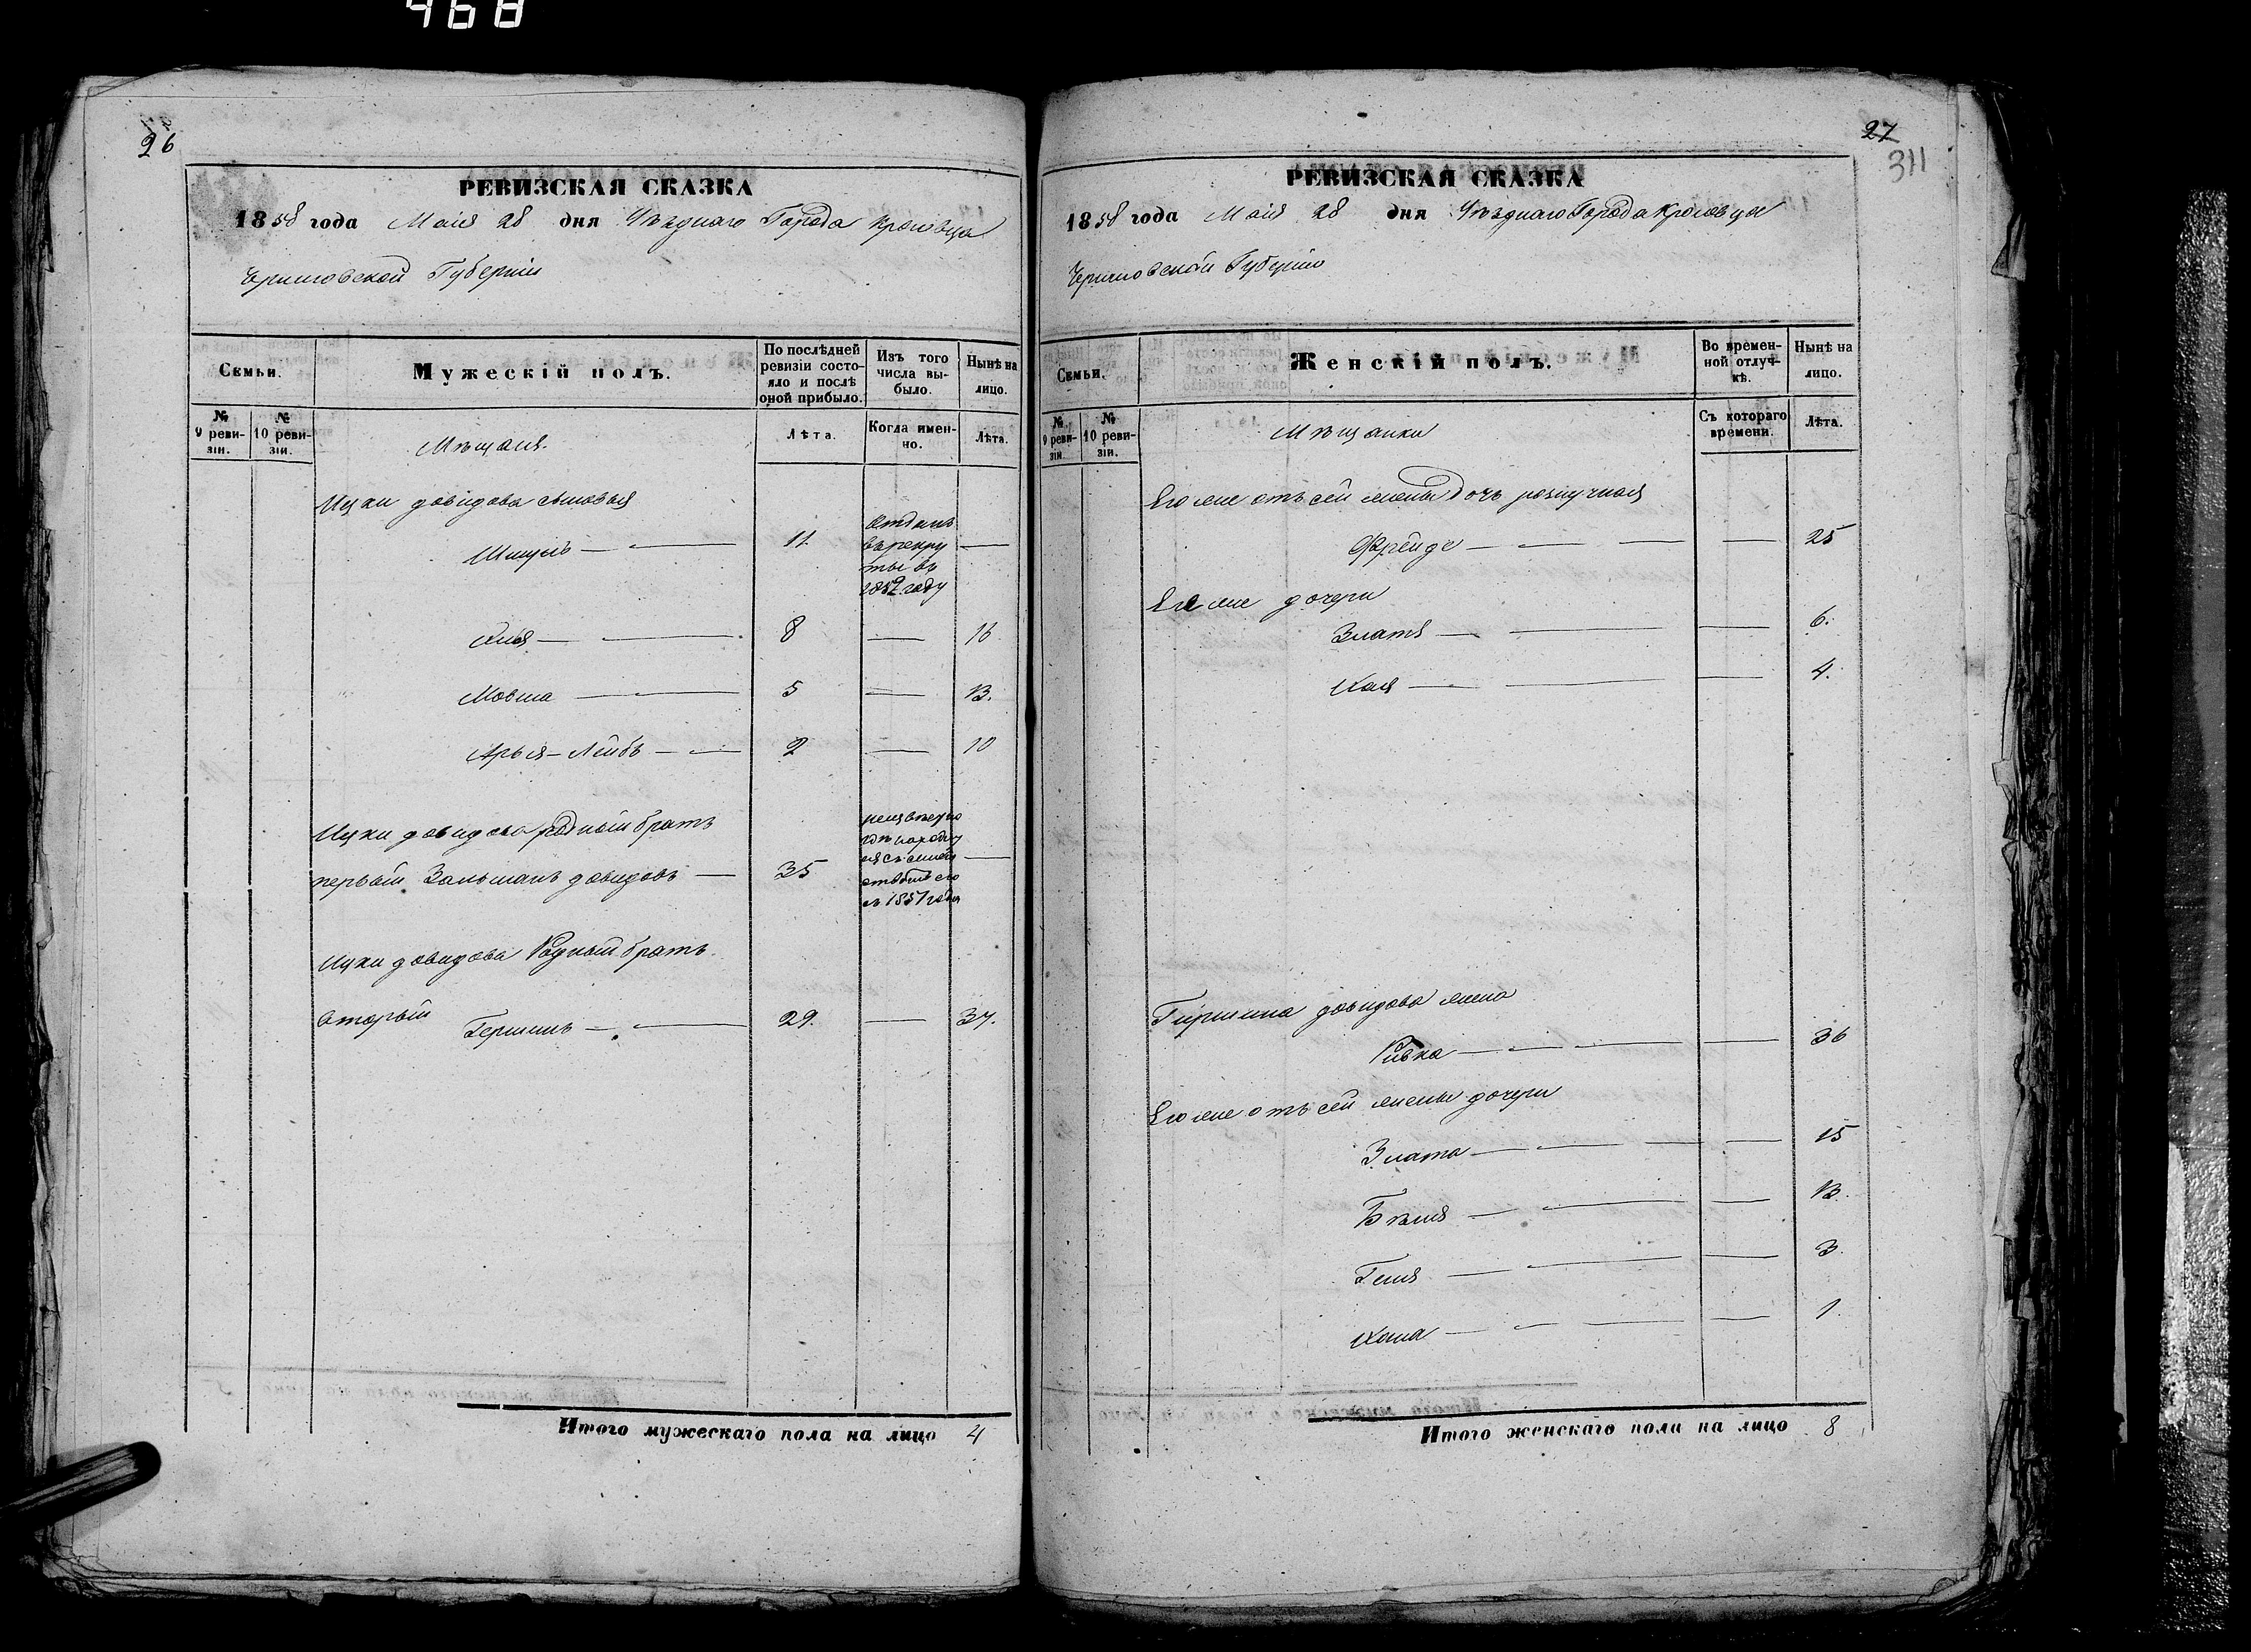 468
26
РЕВИЗСКАЯ СКАЗКА
1858 года Маія 28 дня Уѣзднаго Города Кролевца
Черниговской Губерніи
Семьи.
Мужескій полъ.
По послѣдней ревизіи состояло и послѣ оной прибыло.
Изъ того числа выбыло.
Нынѣ на лицо.
№ 9 ревизіи.
№ 10 ревизіи.
Мѣщане.
Лѣта.
Когда именно.
Лѣта.
Ицки Давидова сыновья
Шмуль — — 11 Отданъ въ рекруты въ году —
— — 8 — 16
Мовша — — 5 — 13.
Арья-Лейбъ — — 2 — 10
Ицки Давидова родный братъ
первый Зальманъ Давидовъ — 35 съ 1857 года —
Ицки Давидова Родный братъ
вторый Гершинъ — — 29. — 37.
Итого мужескаго пола на лицо 4
27
311
РЕВИЗСКАЯ СКАЗКА
1858 года Маія 28 дня Уѣзднаго Города Кролевца
Черниговской Губерніи
Семьи.
Женскій полъ.
Во временной отлучкѣ.
Нынѣ на лицо.
№ 9 ревизіи.
№ 10 ревизіи.
Мѣщанки
Съ котораго времени.
Лѣта.
Его же отъ сей жены дочь
Фрейда — — — — 25
Его же дочери
Злата — — — 6.
Хая — — — 4.
Гиршина Давидова жена
Ривка — — — — 36
Его же отъ сей жены дочери
Злата — — — — 15
Бѣля — — — 13.
Геня — — — 3.
Хана — — — — 1.
Итого женскаго пола на лицо 8